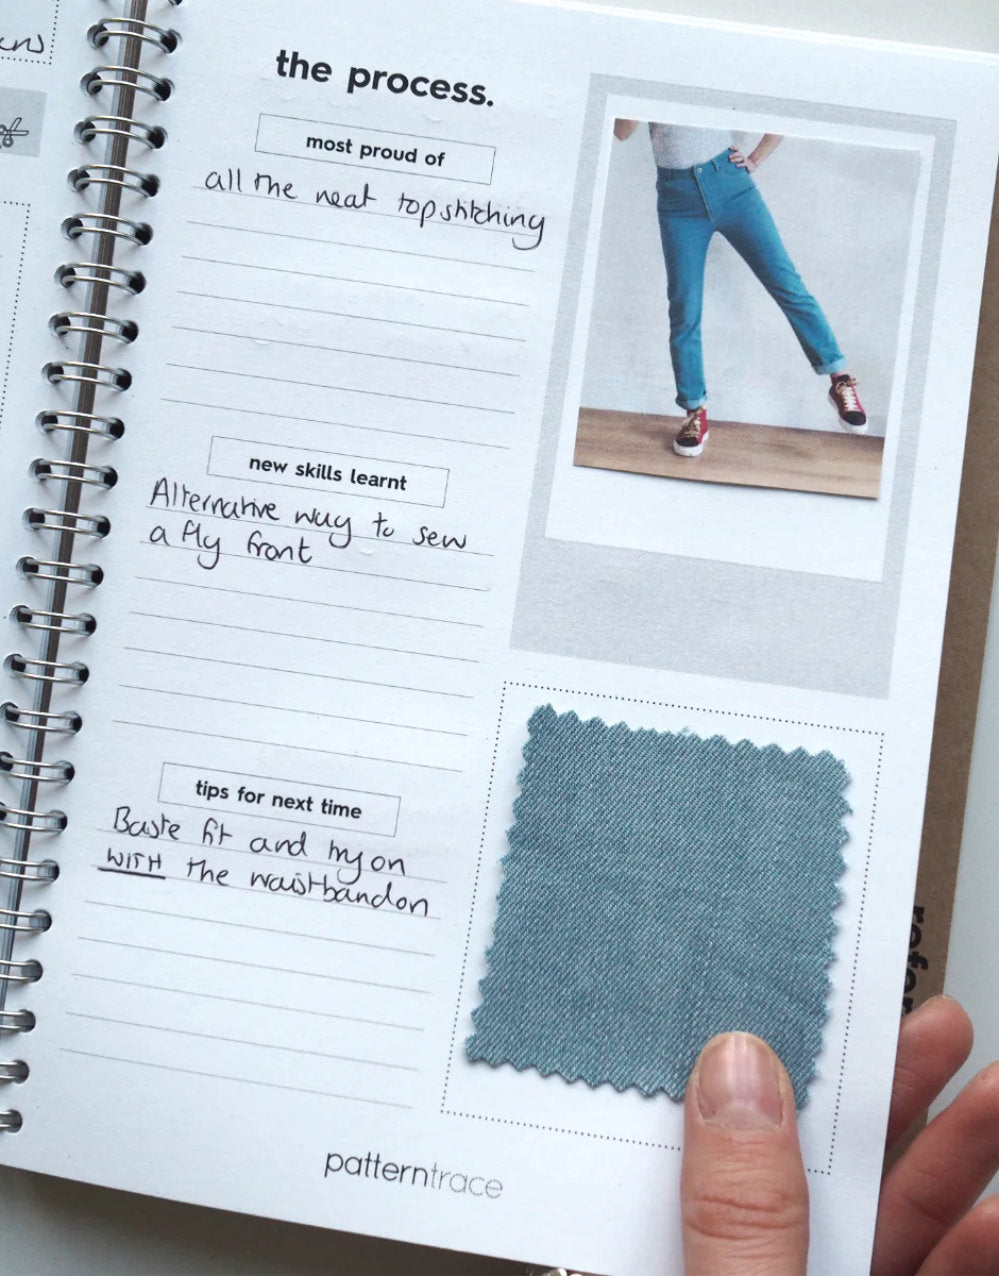 the process.
most proud of
all the neat topstitching
new skills learnt
Alternative way to sew
a fly front
tips for next time
Baste fit and try on
WITH the waistband on
patterntrace